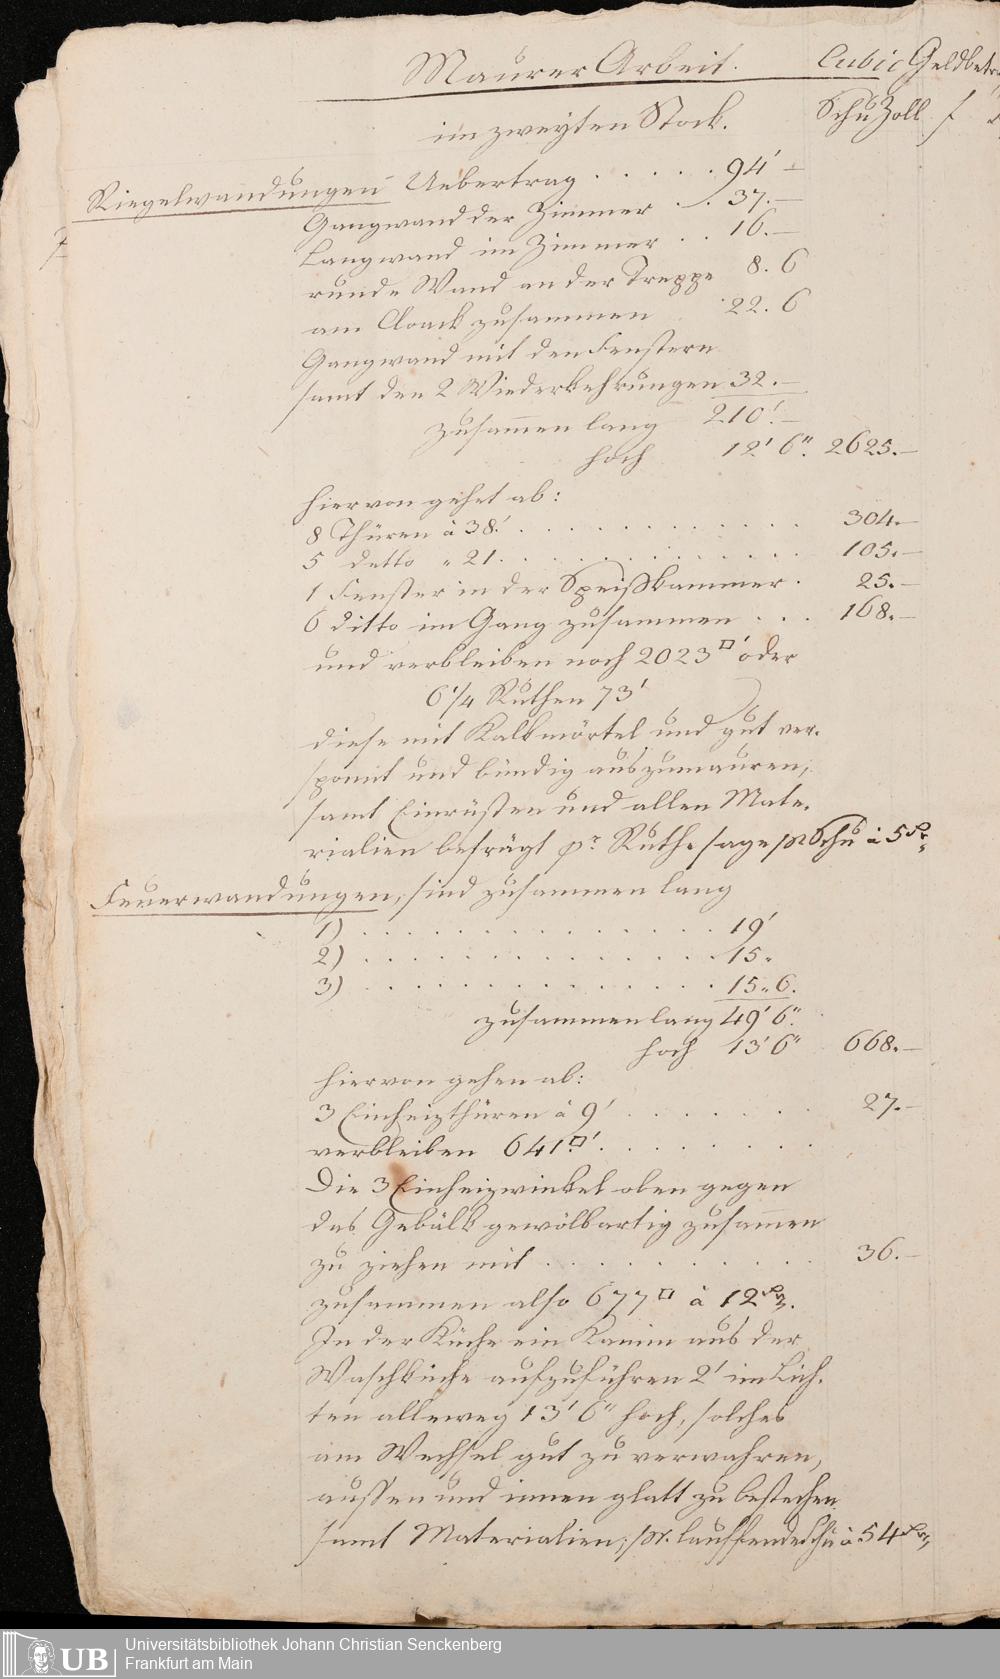 Maurer Arbeit. Cubic Geldbetra
im zweyten Stock. Schu Zoll f
Riegelwandungen Uebertrag . . . . . 94' –
Gangwand der Zimmer . . 37. –
Langwand im Zimmer . . 16. –
runde Wand an der Treppe 8. 6
am Cloack zusammen 22. 6
Gangwand mit den Fenstern
samt den 2 Wiederkehrungen 32. –
zusam̄en lang 210'. –
hoch 12' 6". 2625. –
hiervon gehet ab:
8 Thüren à 38'. . . . . . . . . . . . 304. –
5 detto " 21. . . . . . . . . . . . 105. –
1 Fenster in der Speißkammer . 25. –
6 ditto im Gang zusammen . . . 168. –
und verbleiben noch 2023□' oder
6 1/4 Ruthen 73'
diese mit Kalkmörtel und gut ver-
spannt und bündig auszumauren,
samt Einrüsten und allen Mate-
rialien beträgt pr. Ruthe sage pr Schu à 5 kr.
Feuerwandungen, sind zusammen lang
1) . . . . . . . . . . . . . . 19'
2) . . . . . . . . . . . . . . 15.
3) . . . . . . . . . . . . . . 15. 6.
zusammen lang 49' 6".
hoch 13' 6" 668. –
hiervon gehen ab:
3 Einheizthüren à 9' . . . . . . . 27. –
verbleiben 641□'. . . . . . . .
Die 3 Einheizwinkel oben gegen
das Gebälk gewölbartig zusam̄en
zu ziehen mit . . . . . . . . . . 36. –
zusammen also 677□ à 12 kr.
In der Küche ein Kamin aus der
Waschküche aufzuführen 2' im Lich-
ten alleweg 13' 6" hoch, solches
am Wechsel gut zu verwahren,
aussen und innen glatt zu bestechen
samt Materialien, pr. lauffende Schu à 54 kr.
UB
Universitätsbibliothek Johann Christian Senckenberg
Frankfurt am Main